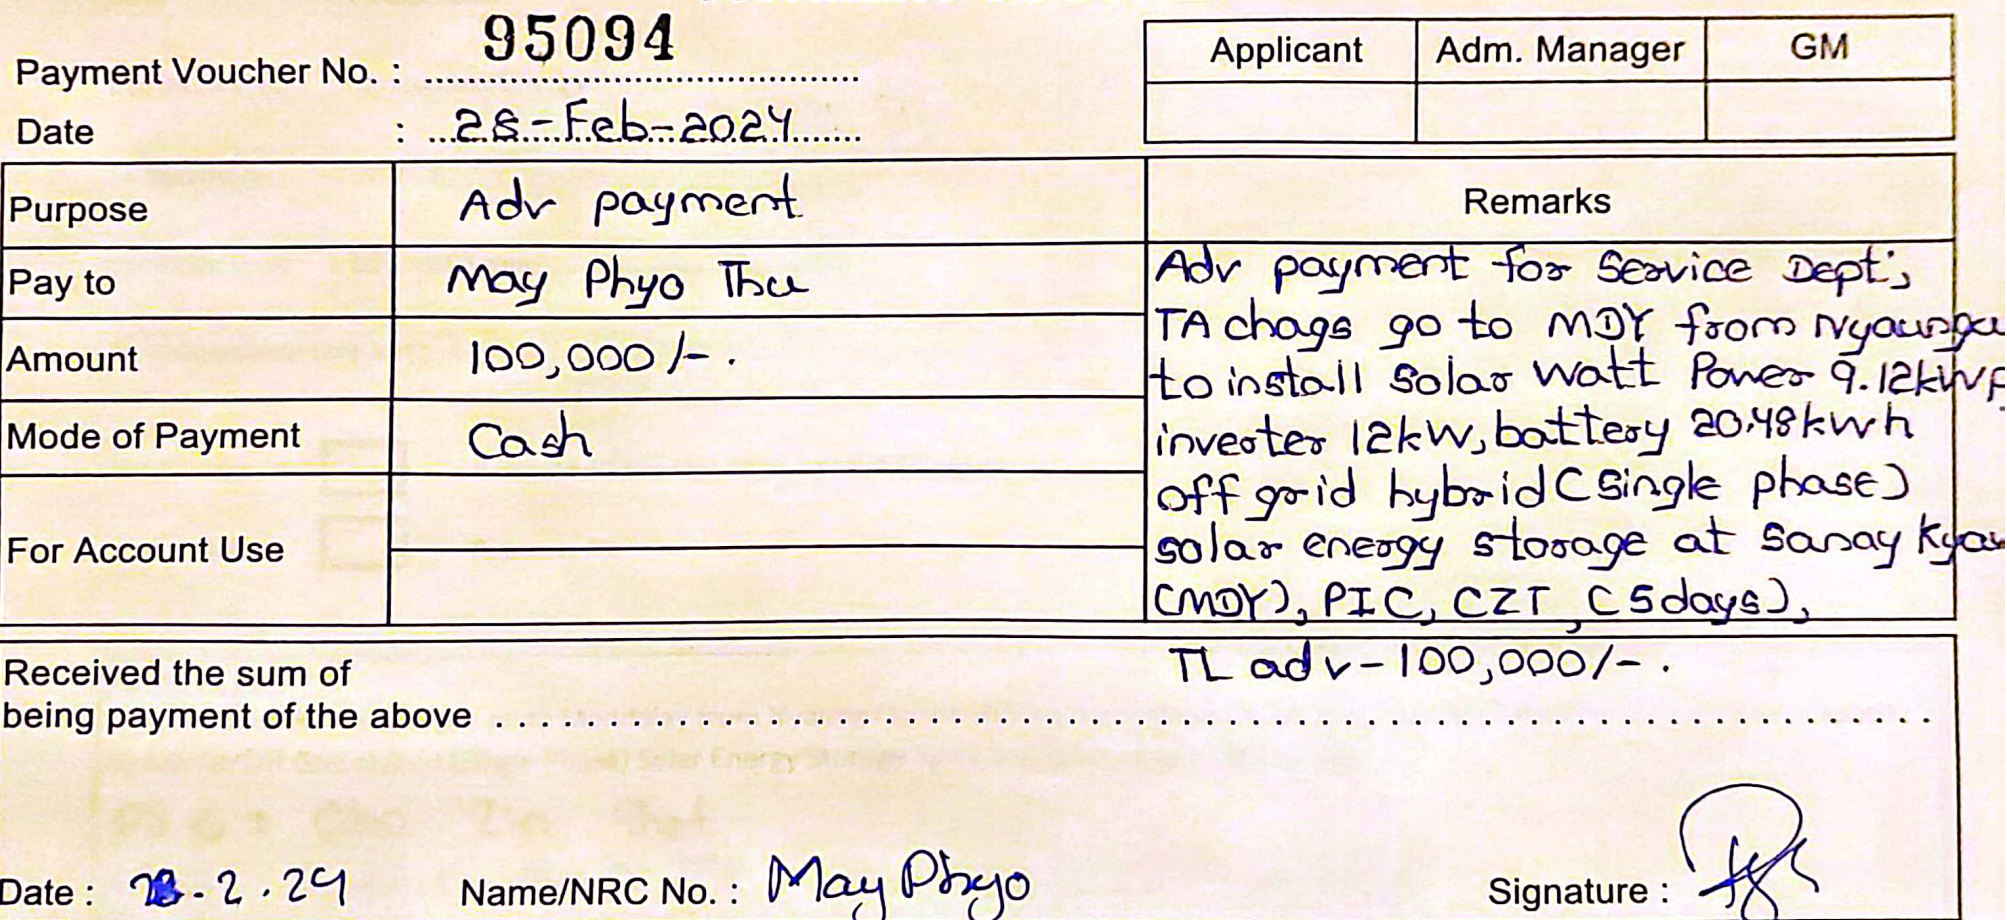 Payment Voucher No. : 95094
Applicant Adm. Manager GM
Date : 28-Feb-2024
Purpose Adv payment
Remarks
Pay to May Phyo Thu
Amount 100,000/-.
Mode of Payment Cash
For Account Use
Adv payment for Service Dept;,
TA chags go to MDY from Nyaungu
to install Solar Watt Power 9.12kWp
inverter 12kW, battery 20.48kWh
off grid hybrid (Single phase)
solar energy storage at Sanay Kyaw
(MDY), PIC, CZT, (5days),
TL adv-100,000/-.
Received the sum of
being payment of the above
Date : 28.2.24 Name/NRC No. : May Phyo Signature :